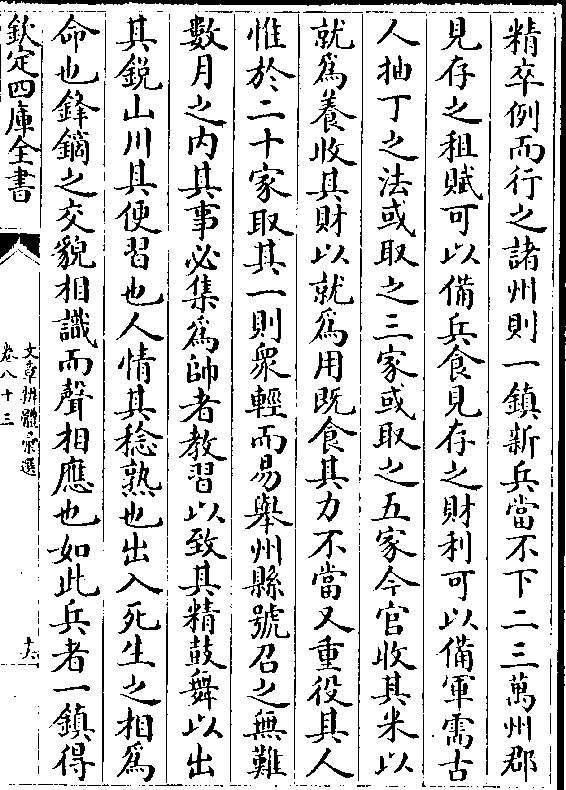 精卒例而行之諸州則一鎮新兵當不下二三萬州郡
見存之租賦可以備兵食見存之財利可以備軍需古
人抽丁之法或取之三家或取之五家今官收其米以
就為養收其財以就為用既食其力不當又重役其人
惟於二十家取其一則衆輕而易舉州縣號召之無難
數月之內其事必集為帥者教習以致其精鼓舞以出
其鋭山川其便習也人情其稔熟也出入死生之相為
命也鋒鏑之交貌相識而聲相應也如此兵者一鎮得
欽定四庫全書
文章辨體彙選
卷八十三
十六